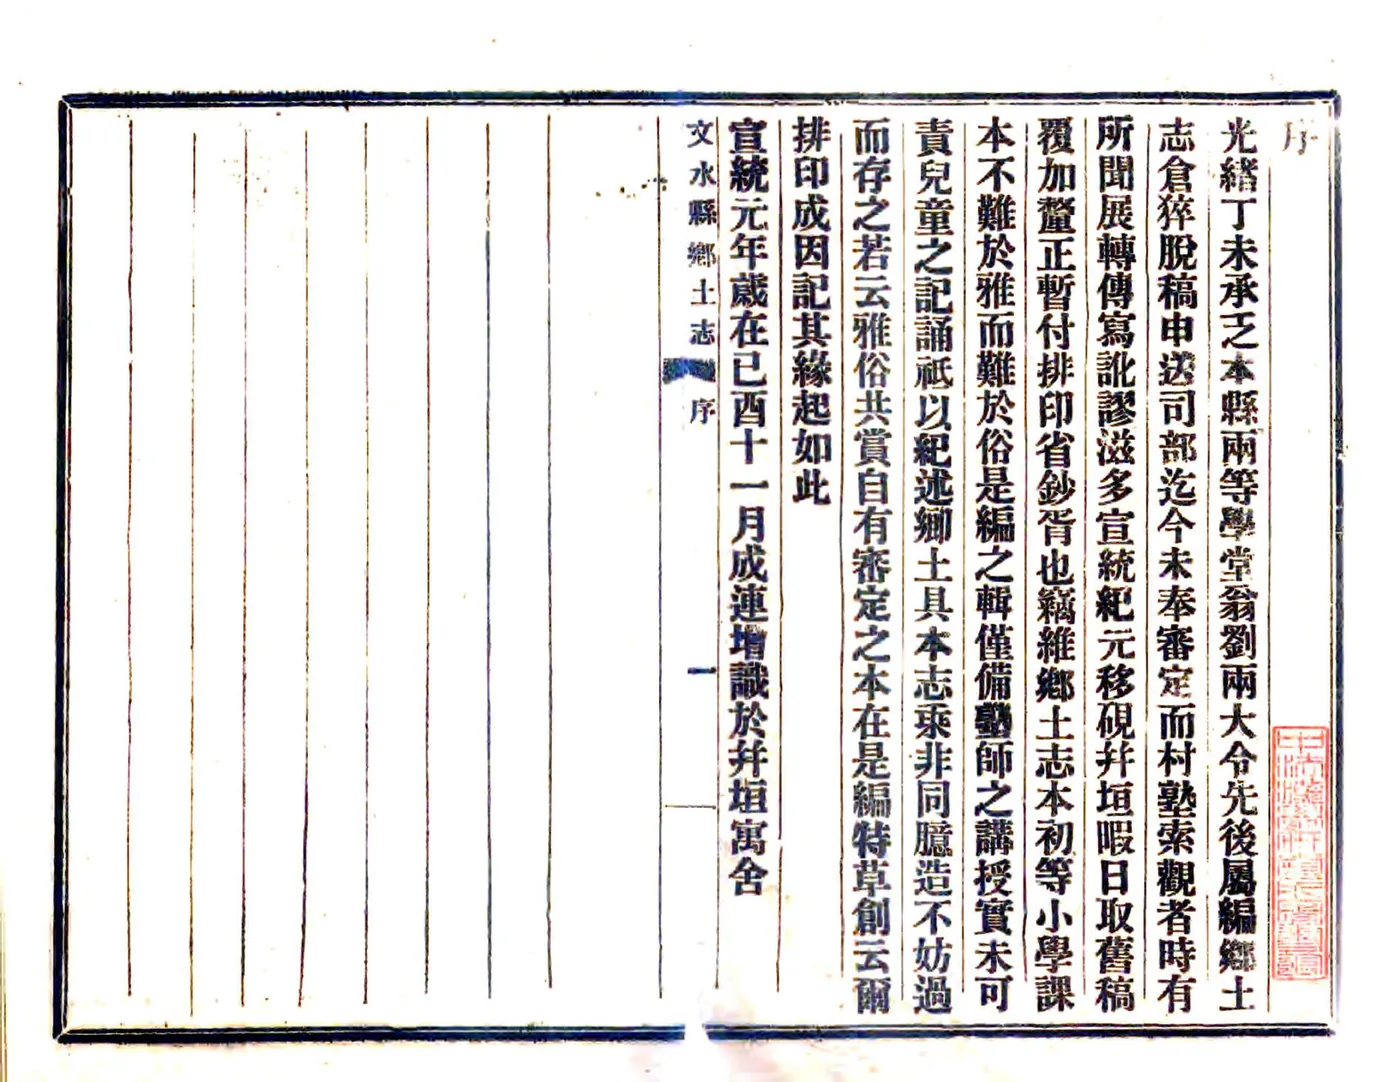 序
光緖丁未承乏本縣兩等學堂翁劉兩大令先後屬編鄉土
志倉猝脫稿申送司部迄今未奉審定而村塾索觀者時有
所聞展轉傳寫訛謬滋多宣統紀元移硯幷垣暇日取舊稿
覆加釐正暫付排印省鈔胥也竊維鄉土志本初等小學課
本不難於雅而難於俗是編之輯僅備塾師之講授實未可
責兒童之記誦祗以紀述鄉土具本志乘非同臆造不妨過
而存之若云雅俗共賞自有審定之本在是編特草創云爾
排印成因記其緣起如此
宣統元年歲在已酉十一月成連增識於幷垣寓舍
文水縣鄉土志 序 一